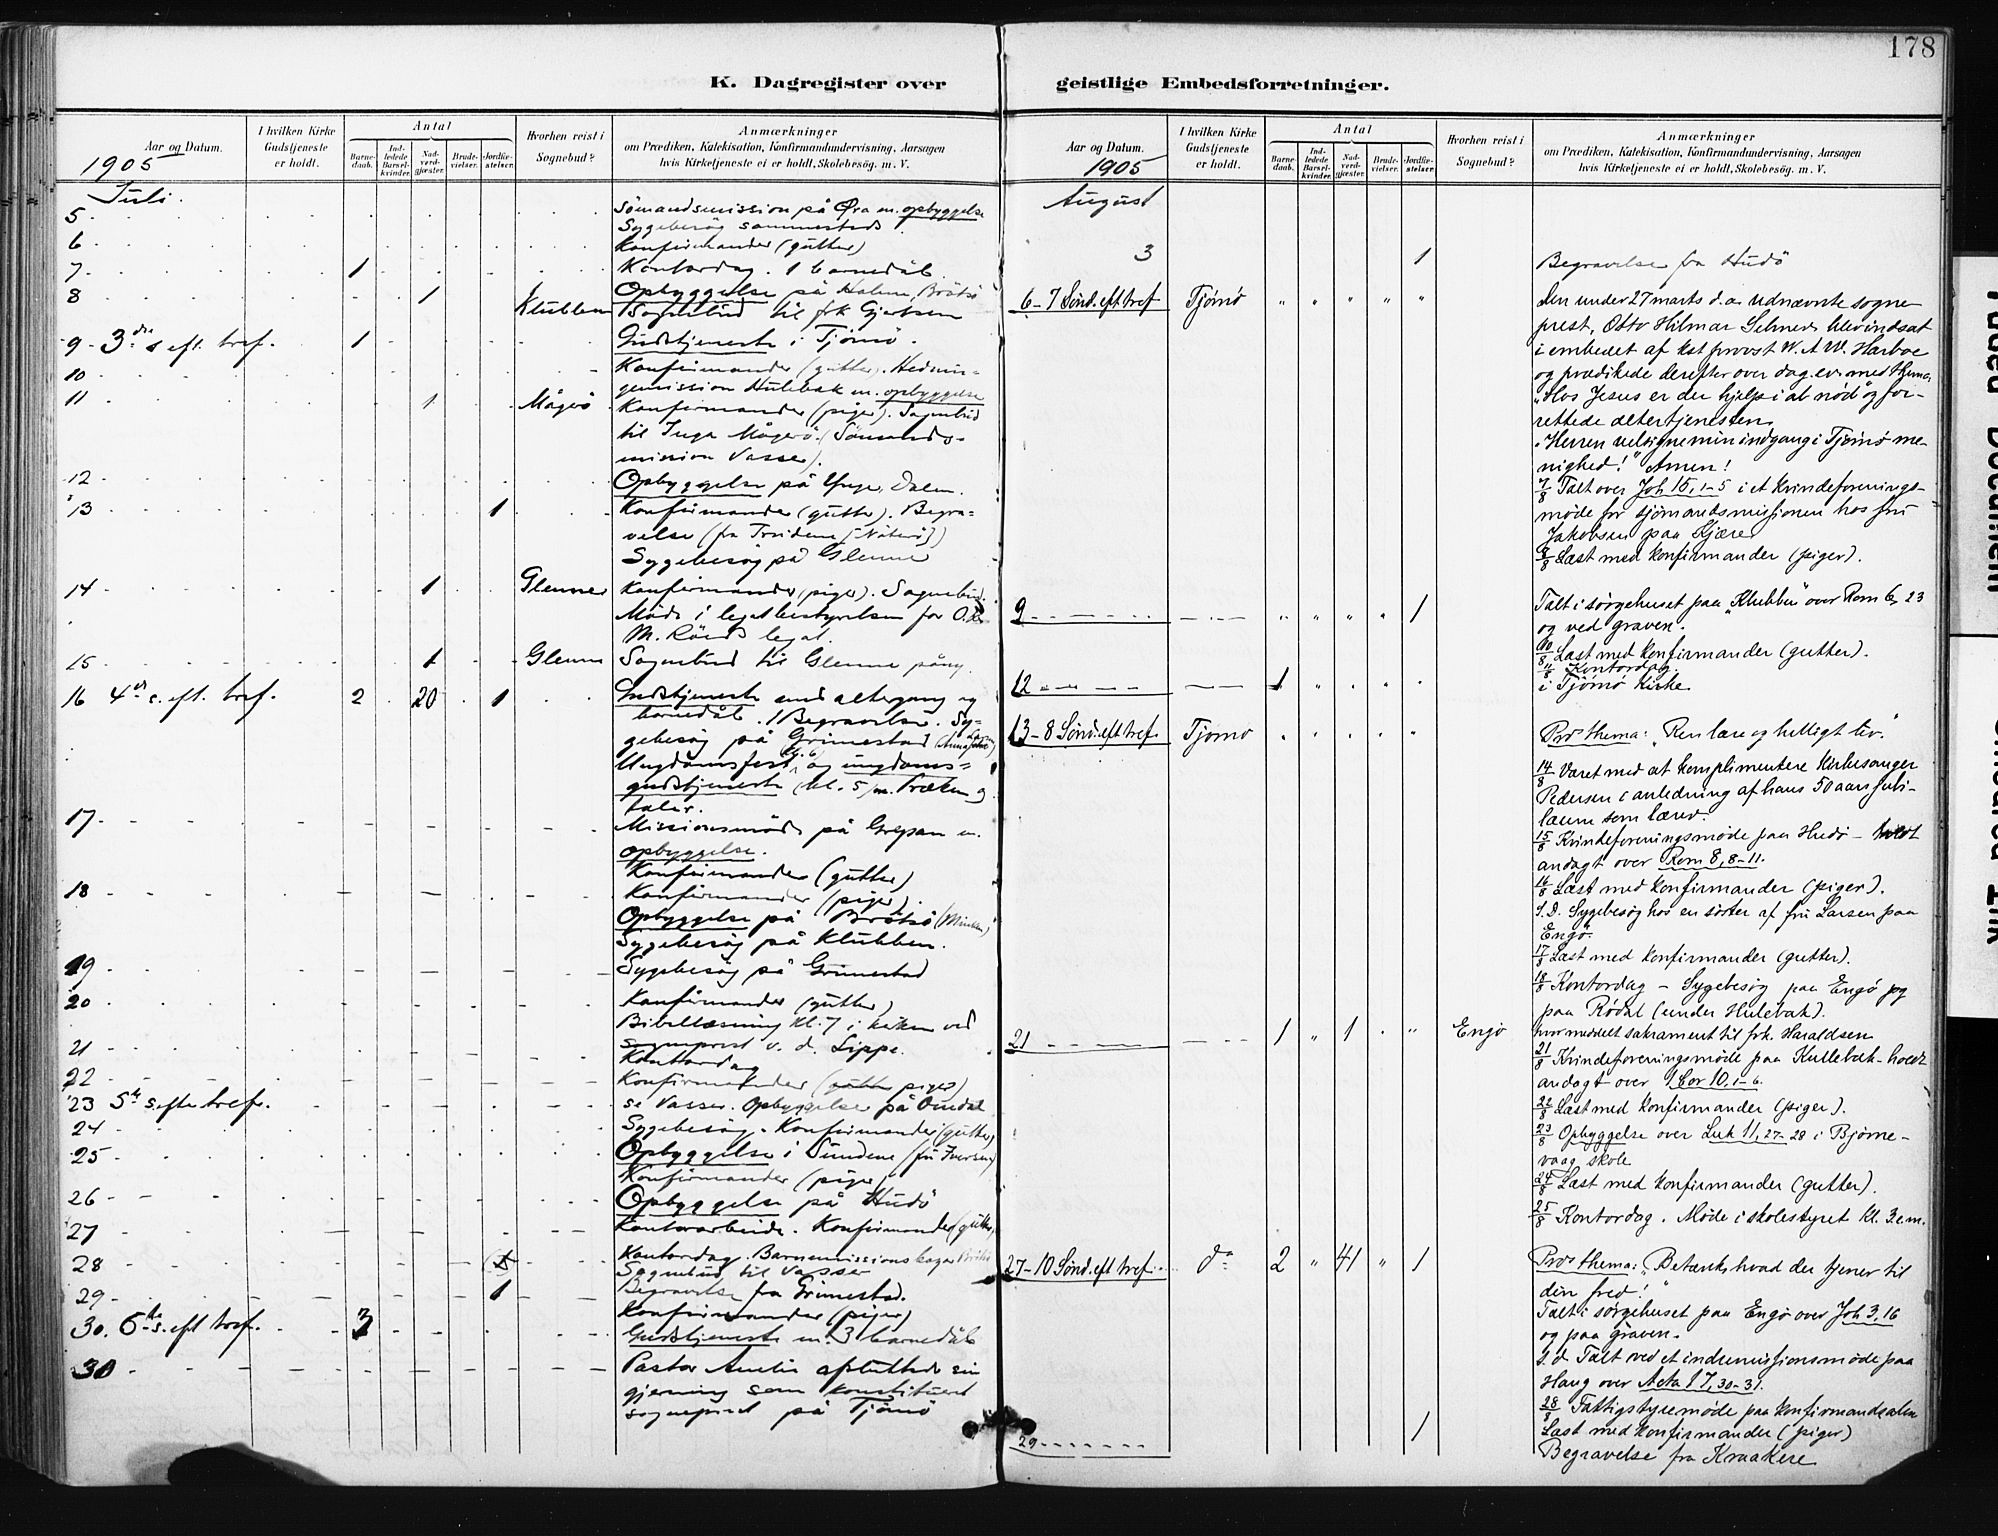 178
K. Dagregister over geistlige Embedsforretninger.
Aar og Datum.
I hvilken Kirke Gudstjeneste er holdt.
Antal
Barnedaab.
Indledede Barselkvinder.
Nadverdgjæster.
Brudevielser.
Jordfæstelser.
Hvorhen reist i Sognebud?
Anmærkninger
om Prædiken, Katekisation, Konfirmandundervisning, Aarsagen
hvis Kirketjeneste ei er holdt, Skolebesøg. m. V.
1905
Juli.
5 Sömandsmission på Öra m. opbyggelse
Sygebesög sammesteds
6 Konfirmander (gutter)
7 1 Kontordag. 1 barnedåb.
8 1 Klubben Opbyggelse på Holmen, Brötsö
Sognebud til frk Gjertsen
9 3die s. eft. tref. 1 Gudstjeneste i Tjömö.
10 Konfirmander (gutter). Hednin-
gemission Hulebak m. opbyggelse
11 1 Mågerö Konfirmander (piger). Sognebud
til Inga Mågerö. (Sömands-
mission Vasser).
12 Opbyggelse på Yngv. Dalen.
13 1 Konfirmander (gutter). Begra-
velse (fra Trældene / Nøterö)
Sygebesög på Glenne
14 1 Glenne Konfirmander (piger). Sognebud.
Möde i legatbestyrelsen for O.
M. Röeds legat.
15 1 Glenne Sognebud til Glenne påny.
16 4de s. eft. tref. 2 20 1 Gudstjeneste med altergang og
barnedåb. 1 Begravelse. Sy-
gebesög på Grimestad
Ungdomsfest kl. 6 og ungdoms-
gudstjeneste (kl. 5 m. Præken og
taler.
17 Missionsmöde på Grepan m.
opbyggelse.
Konfirmander (gutter)
18 Konfirmander (piger).
Opbyggelse på Brötsö
Sygebesög på Klubben.
19 Sygebesög på Grimestad
20 Konfirmander (gutter)
Bibellæsning kl. 7 i kirken ved
21 sogneprest v. d. Lippe.
Kontordag
22 Konfirmander (gutter piger)
23 5te s. efter tref. se Vasser. Opbyggelse på Omdal
24 Sygebesög. Konfirmander (gutter)
25 Opbyggelse i Sundene (fru Iversen)
Konfirmander (piger)
26 Opbyggelse på Hudö
27 Kontorarbeide. Konfirmander (gutter)
28 Kontordag. Barnemissions
Sognebud til Vasser
29 1 Begravelse fra Grimestad.
Konfirmander (piger)
30. 6te s. eft tref. 3 Gudstjeneste m. 3 barnedåb
30 Pastor Amlie afsluttede sin
gjerning som konstitueret
sogneprest på Tjömö
Aar og Datum.
I hvilken Kirke Gudstjeneste er holdt.
Antal
Barnedaab.
Indledede Barselkvinder.
Nadverdgjæster.
Brudevielser.
Jordfæstelser.
Hvorhen reist i Sognebud?
Anmærkninger
om Prædiken, Katekisation, Konfirmandundervisning, Aarsagen
hvis Kirketjeneste ei er holdt, Skolebesøg. m. V.
1905
August
3 1 Begravelse fra Hudö
6 – 7 Sönd. eft tref Tjømø " " " " " Den under 27 marts d. a. udnævnte sogne-
prest, Otto Hilmar Selmer blev indsat
i embedet af kst provst W. A. W. Harboe
og prædikede derefter over dag. ev. med thema:
"Hos Jesus er der hjelp i al nød" og for-
rettede altertjenesten.
"Herren velsigne min indgang i Tjømø me-
nighed!" Amen!
7/8 Talt over Joh 15, 1–5 i et kvindeforenings-
møde for sjømandsmissjonen hos fru
Jakobsen paa Kjære
8/8 Læst med konfirmander (piger).
9 1 Talt i sørgehuset paa "Klubben" over Rom 6, 23
og ved graven.
10/8 Læst med konfirmander (gutter).
11/8 Kontordag.
12 1 i Tjømø Kirke
13 – 8 Sönd. eft tref. Tjømø Præd thema: "Ren lære og helligt liv."
14/8 Været med at komplimentere Kirkesanger
Pedersen i anledning af hans 50 aars jubi-
læum som lærer.
15/8 Kvindeforeningsmøde paa Hudø – holdt
andagt over Rom 8, 8–11.
16/8 Læst med konfirmander (piger).
S. D. Sygebesøg hos en søster af fru Larsen paa
Engø.
17/8 Læst med konfirmander (gutter).
18/8 Kontordag – Sygebesøg paa Engø og
paa Rødal (under Hulebak).
21 1 " 1 " " Engø hvor meddelt sakrament til frk. Haraldsen
21/8 Kvindeforeningsmøde paa Hullebak – holdt
andagt over 1 Cor 10, 1–6.
22/8 Læst med konfirmander (piger).
23/8 Opbyggelse over Luk 11, 27–28 i Bjørne-
vaag skole
24/8 Læst med konfirmander (gutter).
25/8 Kontordag. Møde i skolestyret kl. 3 e.m.
27 – 10 Sönd. eft tref. do 2 " 41 " 1 Præd thema: "Betænk hvad der tjener til
din fred!"
Talt i sørgehuset paa Engø over Joh 3, 16
og paa graven.
S. d. Talt ved et indremissjonsmøde paa
Haug over Acta 17, 30–31.
28/8 Fattigstyremøde paa konfirmandsalen
Læst med konfirmander (piger)
29 1 Begravelse fra Kraakere